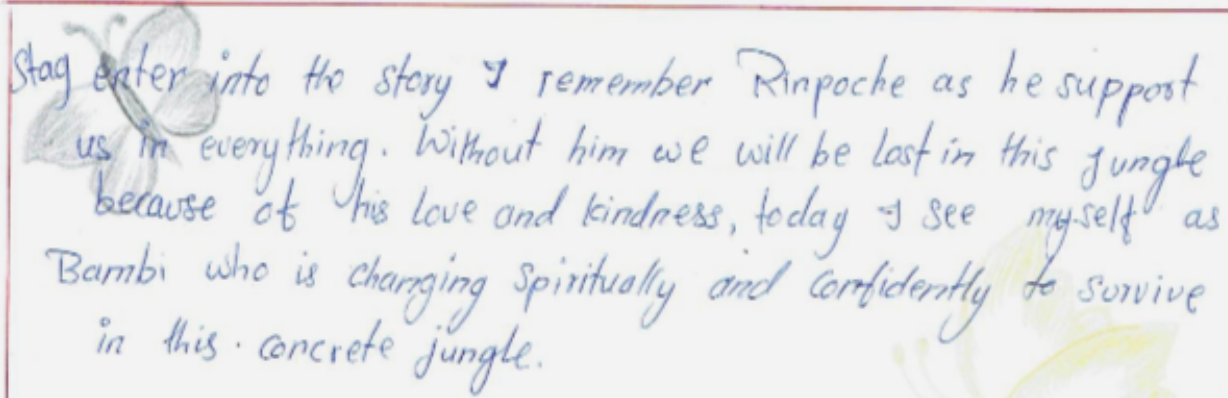 Stag enter into the story I remember Rinpoche as he support
us in everything. Without him we will be lost in this jungle
because of his love and kindness, today I see myself as
Bambi who is changing spiritually and confidently to survive
in this. concrete jungle.